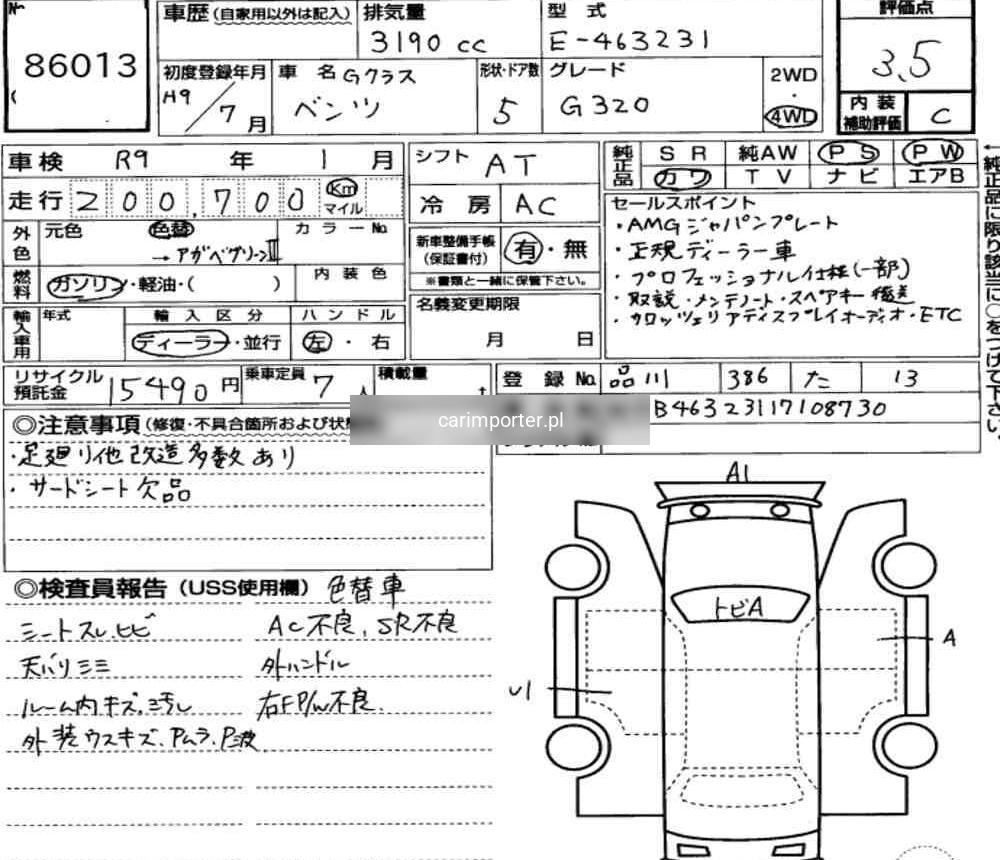 No.
86013
(
車歴 (自家用以外は記入)
排気量
3190 cc
型 式
E-463231
評価点
3.5
内装補助評価 C
初度登録年月
H9/7月
車 名 Gクラス
ベンツ
形状・ドア数
5
グレード
G320
2WD・4WD
車検 R9年 1月
走行 200,700 Km マイル
外色 元色 色替 カラーNo.
→アガベグリーンⅡ
燃料 ガソリン・軽油・( ) 内装色
輸入車用 年式 輸入区分 ハンドル
ディーラー・並行 左・右
シフト AT
冷房 AC
新車整備手帳(保証書付) 有・無
※書類と一緒に保管下さい。
名義変更期限
月 日
純正品 SR 純AW PS PW
カワ TV ナビ エアB
←純正品に限り該当に○をつけて下さい。
セールスポイント
・AMGジャパンプレート
・正規ディーラー車
・プロフェッショナル仕様(一部)
・取説・メンテノート・スペアキー
・カロッツェリアディスプレイオーディオ・ETC
リサイクル預託金 15490円
乗車定員 7人
積載量 t
登録No. 品川 386 た 13
B46323117108730
carimporter.pl
◎注意事項(修復・不具合箇所および状
・足廻り他改造多数あり
・サードシート欠品
◎検査員報告(USS使用欄) 色替車
シートスレ.ヒビ AC不良、SR不良
天バリシミ 外ハンドル
ルーム内キズ.汚れ 右FP/W不良.
外装ウスキズ.Pムラ.P波
A1
トビA
A
U1